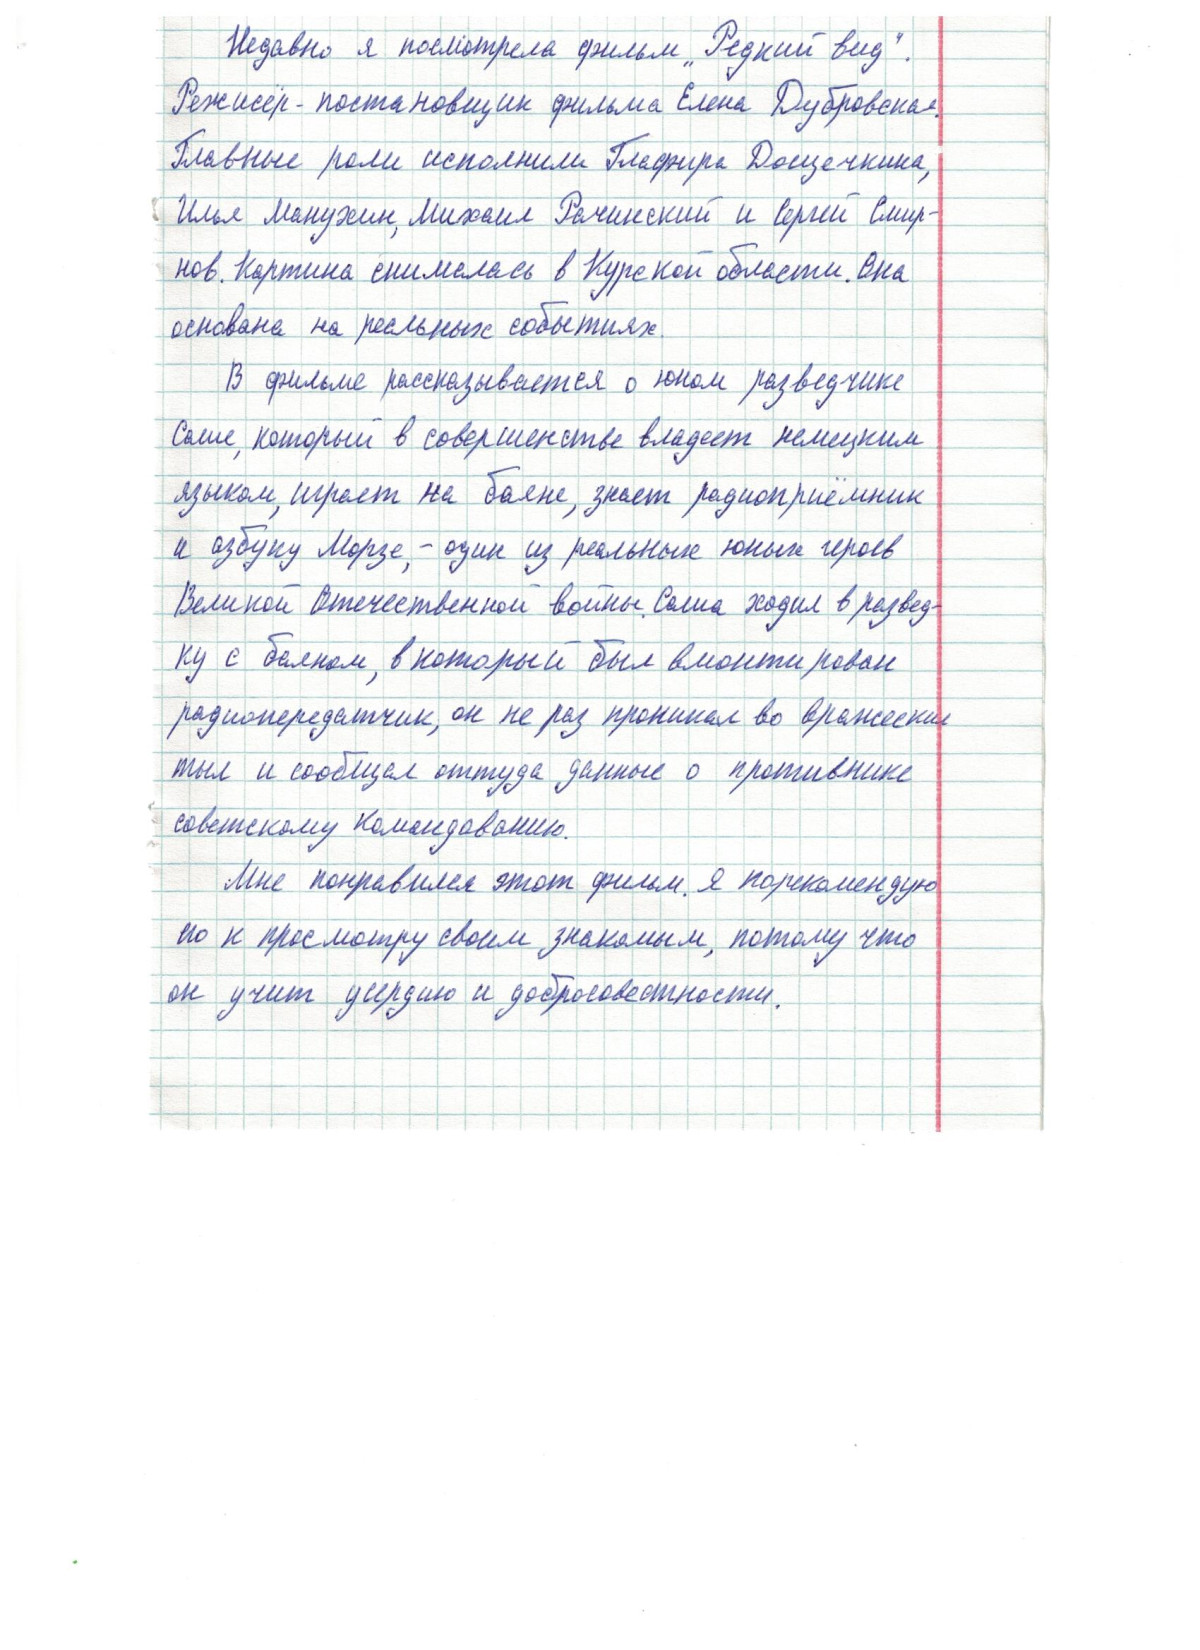 Недавно я посмотрела фильм „Редкий вид".
Режисёр-постановщик фильма Елена Дубровская.
Главные роли исполнили Глафира Дощечкина,
Илья Манухин, Михаил Рачинский и Сергей Смир-
нов. Картина снималась в Курской области. Она
основана на реальных событиях.
В фильме рассказывается о юном разведчике
Саше, который в совершенстве владеет немецким
языком, играет на баяне, знает радиоприёмник
и азбуку Морзе, - один из реальных юных героев
Великой Отечественной войны. Саша ходил в развед-
ку с баяном, в который был вмонтирован
радиопередатчик, он не раз проникал во вражеский
тыл и сообщал оттуда данные о противнике
советскому командованию.
Мне понравился этот фильм. Я порекомендую
его к просмотру своим знакомым, потому что
он учит усердию и добросовестности.